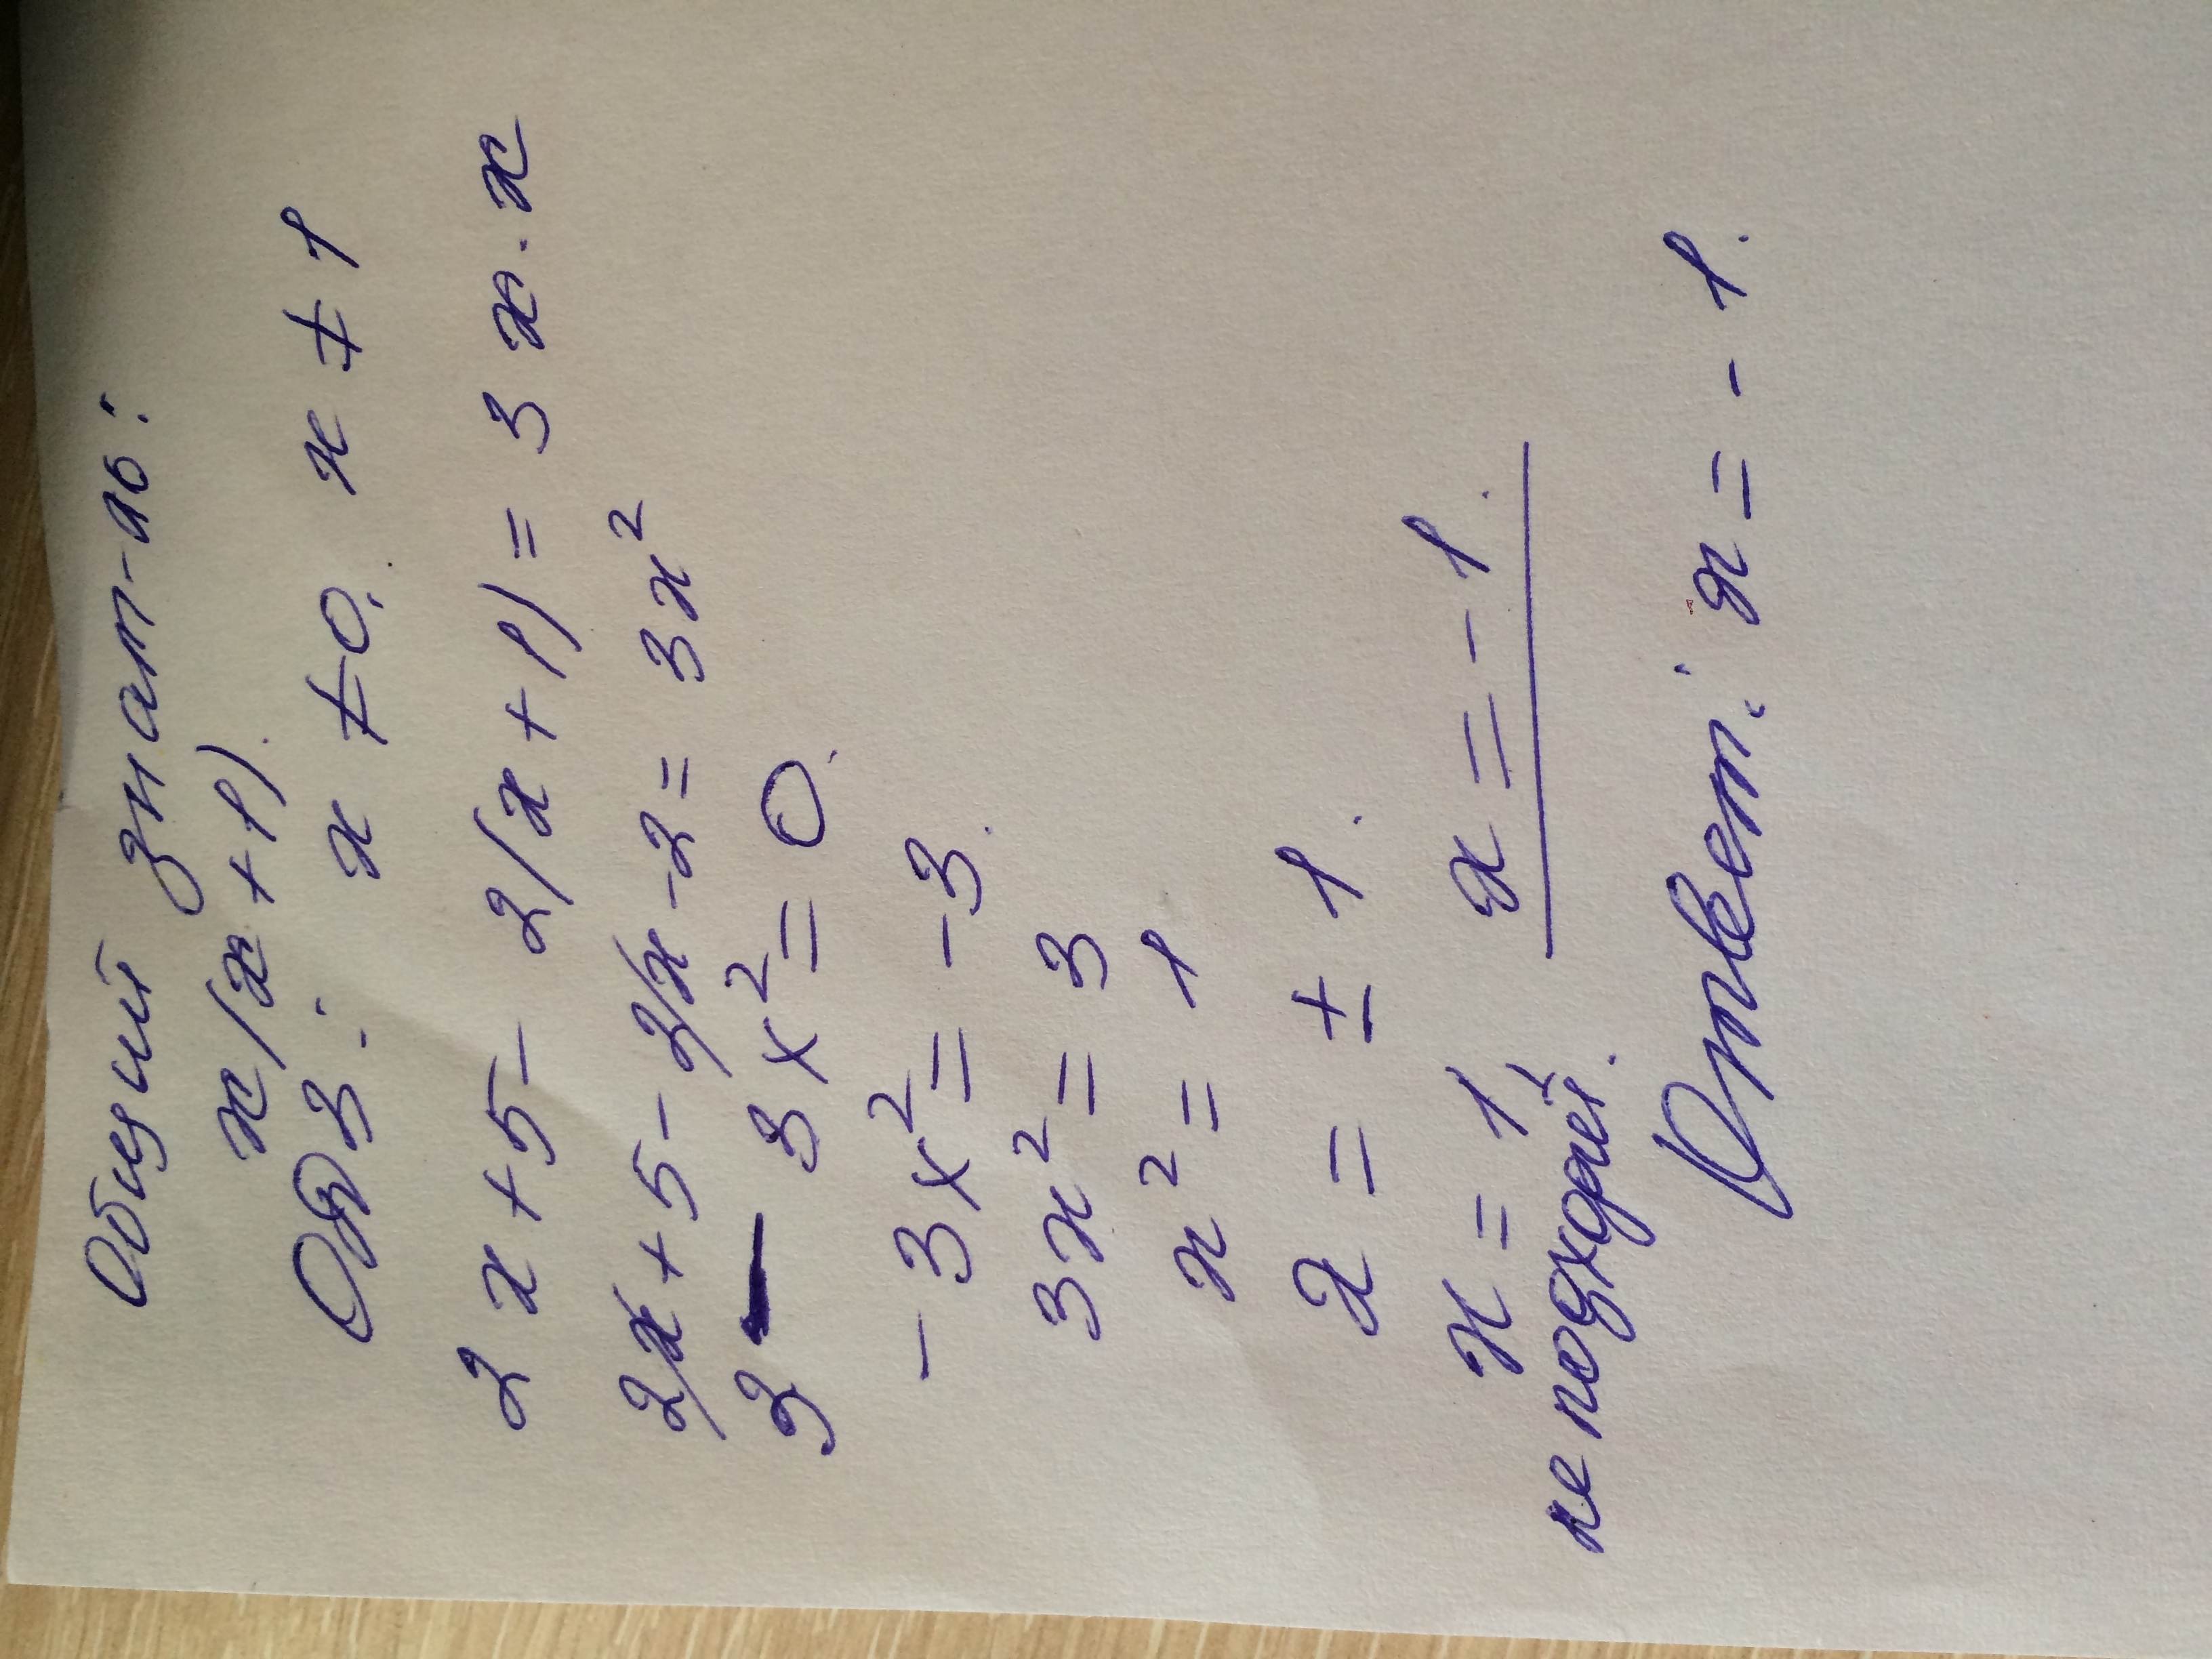 Общий знам-ль:
x(x+1).
ОДЗ: x ≠ 0. x ≠ 1
2x+5-2(x+1)=3x·x
2x+5-2x-2=3x²
3-3x²=0.
-3x²=-3.
3x²=3
x²=1
x=±1.
x=1 x=-1.
не подходит.
Ответ: x=-1.